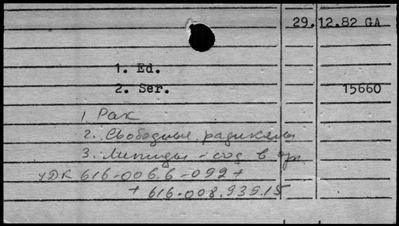 29.12.82 GA
1. Ed.
2. Ser. 15660
1. Рак
2. Свободные радикалы
3. Липиды - сод в орг.
УДК 616-006.6-092 +
+ 616-008.939.15